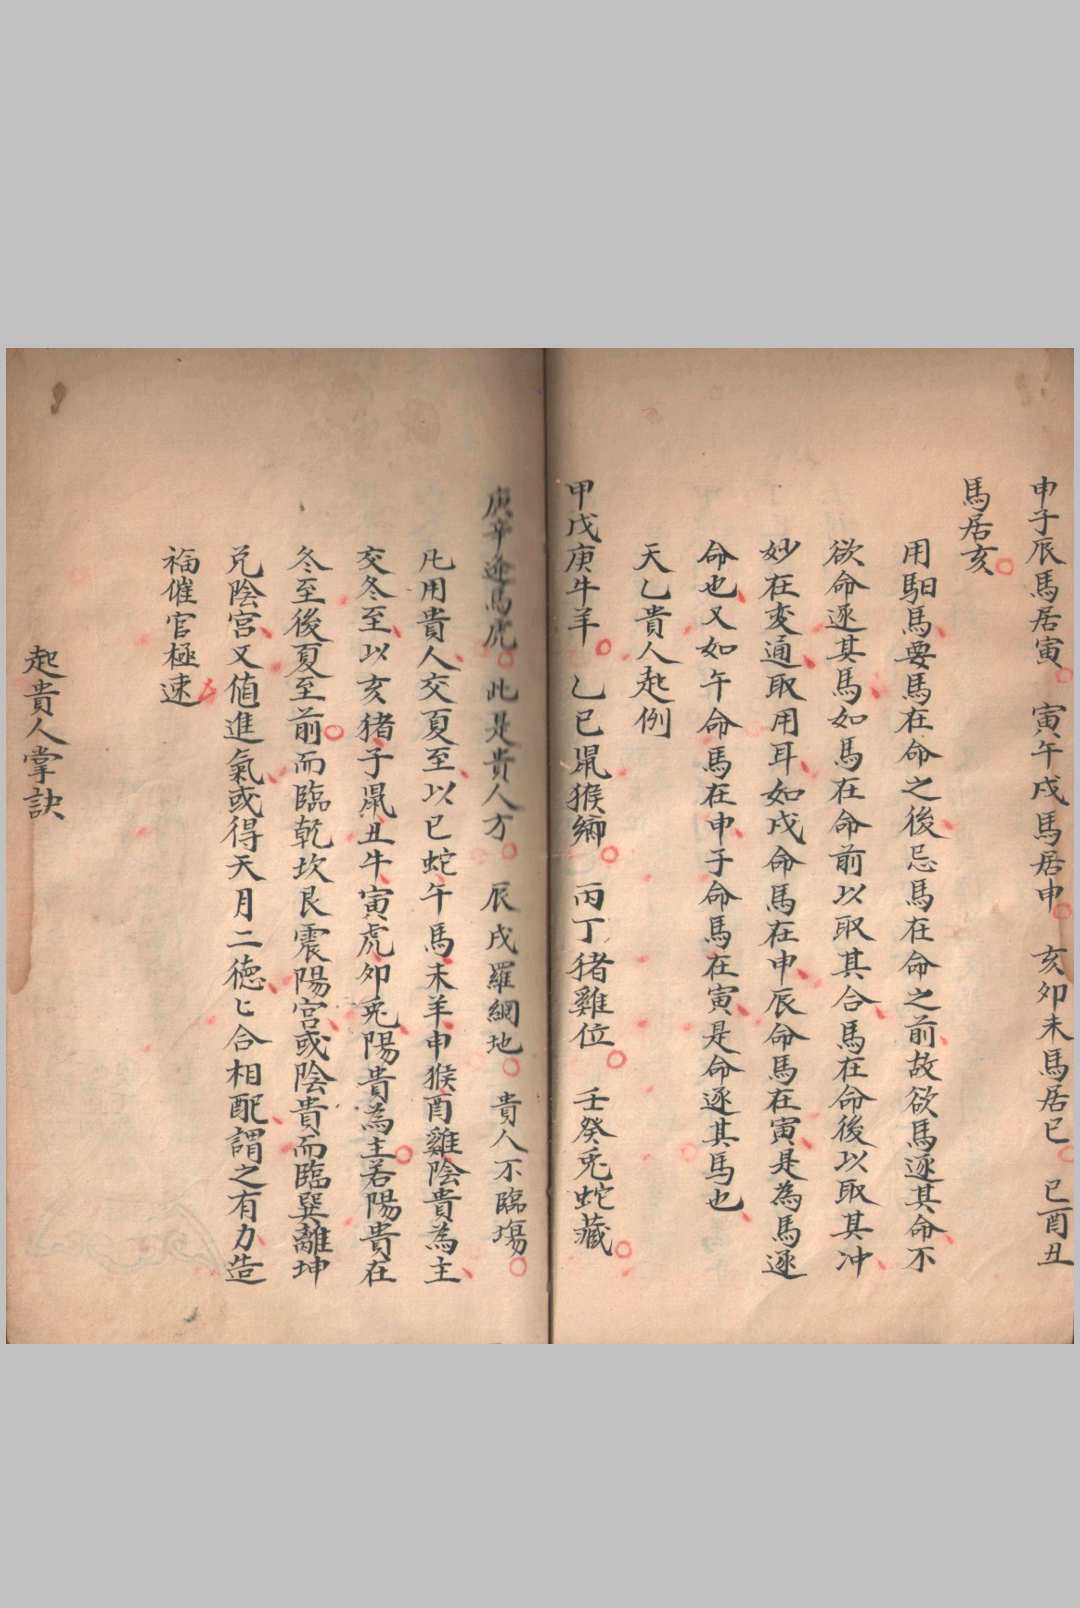 申子辰馬居寅 寅午戌馬居申 亥卯未馬居巳 巳酉丑
馬居亥
用馹馬要馬在命之後忌馬在命之前故欲馬逐其命不
欲命逐其馬如馬在命前以取其合馬在命後以取其冲
妙在変通取用耳如戌命馬在申辰命馬在寅是為馬逐
命也又如午命馬在申子命馬在寅是命逐其馬也
天乙貴人起例
甲戊庚牛羊 乙己鼠猴鄉 丙丁猪雞位 壬癸兎蛇藏
庚辛逢馬虎 此是貴人方 辰戌羅網地 貴人不臨塲
凡用貴人交夏至以巳蛇午馬未羊申猴酉雞陰貴為主
交冬至以亥猪子鼠丑牛寅虎卯兎陽貴為主若陽貴在
冬至後夏至前而臨乾坎艮震陽宮或陰貴而臨巽離坤
兌陰宮又值進氣或得天月二德匕合相配謂之有力造
福催官極速
起貴人掌訣